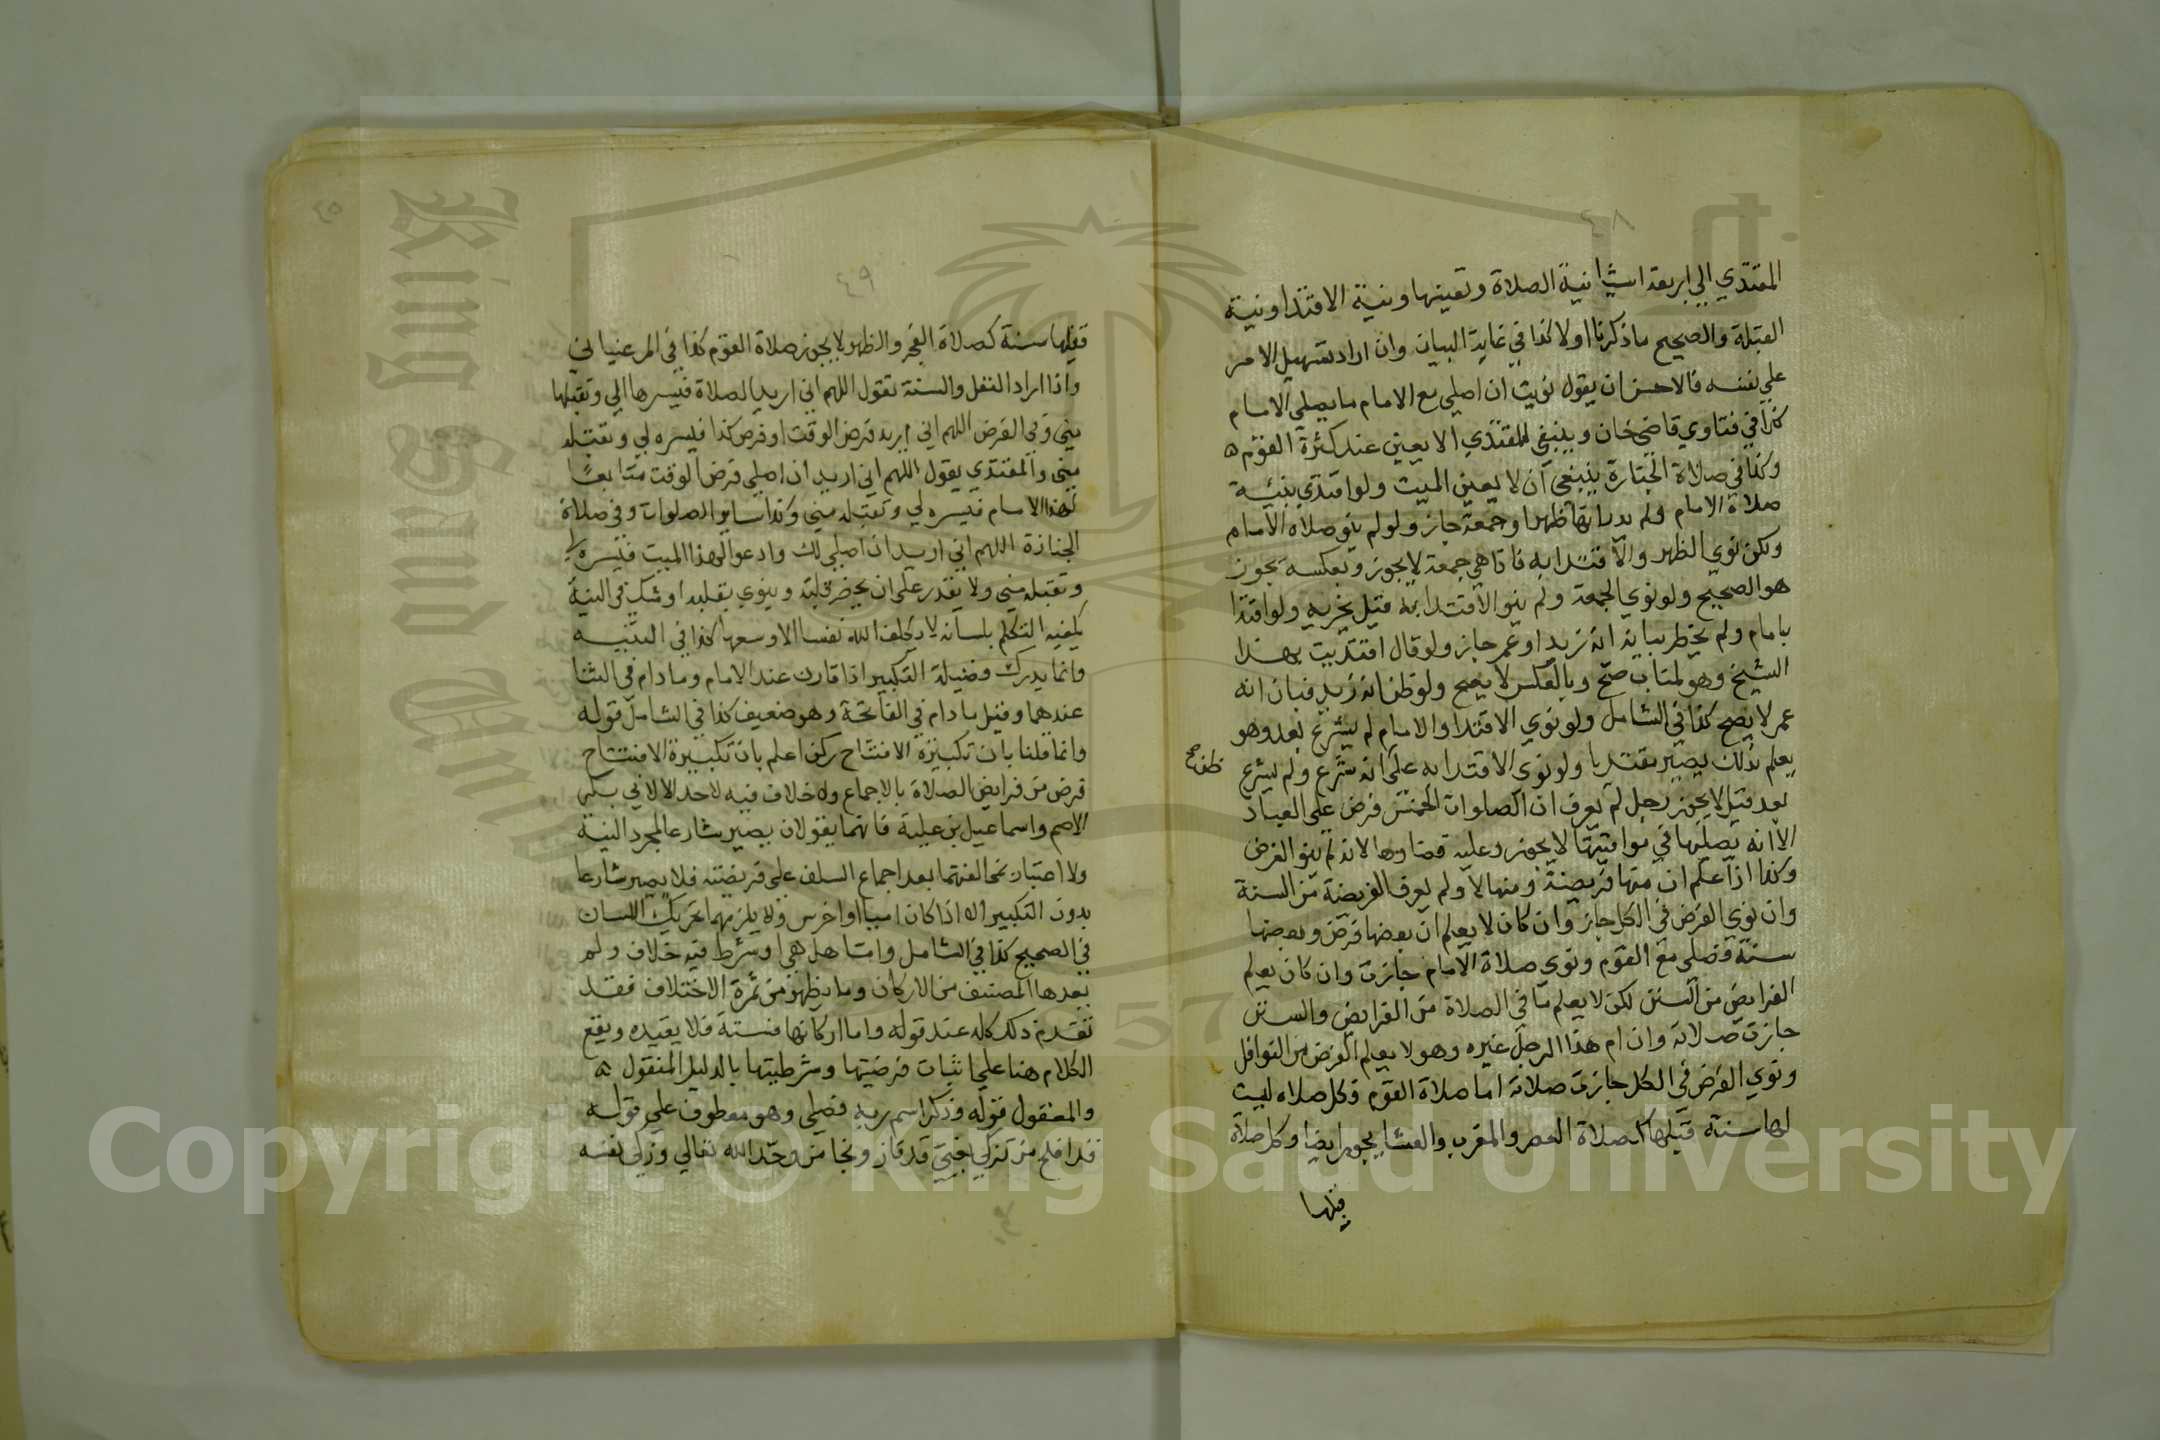 ٤٨
المقتدي الي اربعة اشيا نية الصلاة وتعينها ونية الاقتدا ونية
القبلة والصحيح ما ذكرنا اولا كذا في غاية البيان وان اراد تسهيل الامر
علي نفسه فالاحسن ان يقول نويت ان اصلي مع الامام ما يصلي الامام
كذا في فتاوي قاضي خان وينبغي للمقتدي الا يعين عند كثرة القوم ه
وكذا في صلاة الجنازة ينبغي ان لا يعين الميت ولو اقتدي بنية
صلاة الامام ولم يدر انها ظهر او جمعة جاز ولو لم ينو صلاه الامام
ولكن نوي الظهر والاقتدا به فاذا هي جمعة لا يجوز وبعكسه يجوز
هو الصحيح ولو نوي الجمعة ولم ينو الاقتدا به قيل يجزيه ولو اقتدا
بامام ولم يخطر بباله انه زيد او عمر جاز ولو قال اقتديت بهذا
الشيخ وهو لشاب صح وبالعكس لا يصح ولو ظن انه زيد فبان انه
عمر لا يصح كذا في الشامل ولو نوي الاقتدا والامام لم يشرع بعد وهو
يعلم بذلك يصير مقتديا ولو نوي الاقتدا به علي انه شرع ولم يشرع
بعد قيل لا يجوز رجل لم يعرف ان الصلوات الخمس فرض علي العباد
الا انه يصليها في مواقيتها لا يجوز وعليه قضاوها لانه لم ينو الفرض
وكذا اذا علم ان منها فريضة ومنها لا ولم يعرف الفريضة من السنة
وان نوي الفرض في الكل جاز وان كان لا يعلم ان بعضها فرض وبعضها
سنة فصلي مع القوم ونوي صلاة الامام جازت وان كان يعلم
الفرايض من السنن لكن لا يعلم ما في الصلاة من الفرايض والسنن
جازت صلاته وان ام هذا الرجل غيره وهو لا يعلم الفرض من النوافل
ونوي الفرض في الكل جازت صلاته اما صلاة القوم فكل صلاه ليست
لها سنة قبلها كصلاة العصر والمغرب والعشا يجوز ايضا وكل صلاة
قبلها
٤٥
٤٩
قبلها سنة كصلاة الفجر والظهر لا يجوز صلاة القوم كذا في المرغيناني
واذا اراد النفل والسنة تقول اللهم اني اريد الصلاة فيسرها الي وتقبلها
مني وفي الفرض اللهم اني اريد فرض الوقت او فرض كذا فيسره لي وتقبله
مني والمقتدي يقول اللهم اني اريد ان اصلي فرض الوقت متابعا
لهذا الامام فيسره لي وتقبله مني وكذا سابر الصلوات وفي صلاة
الجنازة اللهم اني اريد ان اصلي لك وادعو لهذا الميت فيسره لي
وتقبله مني ولا يقدر علي ان يحضر قلبه وينوي بقلبه او شك في النية
يكفيه التكلم بلسانه لا يكلف الله نفسا الا وسعها كذا في التنبيه
وانما يدرك فضيلة التكبير اذا قارن عند الامام وما دام في الثنا
عندهما وقيل ما دام في الفاتحة وهو ضعيف كذا في الشامل قوله
وانما قلنا بان تكبيرة الافتتاح ركن اعلم بان تكبيرة الافتتاح
فرض من فرايض الصلاة بالاجماع ولا خلاف فيه لاحد الا لابي بكر
الاصم واسماعيل بن علية فانهما يقولان يصير شارعا بمجرد النية
ولا اعتبار بمخالفتهما بعد اجماع السلف علي فريضته فلا يصير شارعا
بدون التكبير الا اذا كان اميا او اخرس ولا يلزمهما تحريك اللسان
في الصحيح كذا في الشامل واما هل هي او شرط فيه خلاف ولم
يعدها المصنف من الاركان وما يظهر من ثمرة الاختلاف فقد
تقدم ذلك كله عند قوله واما اركانها فستة فلا يفيده ويقع
الكلام هنا علي اثبات فرضيتها وشرطيتها بالدليل المنقول ه
والمعقول قوله وذكر اسم ربه فصلي وهو معطوف علي قوله
قد افلح من تزكي فيني قد فاز ونجا من وحد الله تعالي وزكي نفسه
King Saud University
1957
Copyright © King Saud University